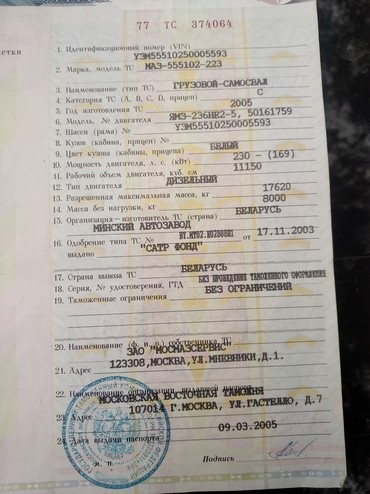 77 ТС 374064
1. Идентификационный номер (VIN) У3М55510250005593
2. Марка, модель ТС МАЗ-555102-223
3. Наименование (тип ТС) ГРУЗОВОЙ-САМОСВАЛ
4. Категория ТС (А, В, С, D, прицеп) С
5. Год изготовления ТС 2005
6. Модель, № двигателя ЯМЗ-236НЕ2-5, 50161759
7. Шасси (рама) № У3М55510250005593
8. Кузов (кабина, прицеп) №
9. Цвет кузова (кабины, прицепа) БЕЛЫЙ
10. Мощность двигателя, л. с. (кВт) 230 - (169)
11. Рабочий объем двигателя, куб. см 11150
12. Тип двигателя ДИЗЕЛЬНЫЙ
13. Разрешенная максимальная масса, кг 17620
14. Масса без нагрузки, кг 8000
15. Организация-изготовитель ТС (страна) БЕЛАРУСЬ
МИНСКИЙ АВТОЗАВОД
16. Одобрение типа ТС № от 17.11.2003
выдано "САТР ФОНД"
17. Страна вывоза ТС БЕЛАРУСЬ
18. Серия, № удостоверения, ГТД БЕЗ ПРОВЕДЕНИЯ ТАМОЖЕННОГО ОФОРМЛЕНИЯ
19. Таможенные ограничения БЕЗ ОГРАНИЧЕНИЙ
20. Наименование (ф. и. о.) собственника ТС
ЗАО "МОСМАЗСЕРВИС"
21. Адрес 123308,МОСКВА,УЛ.МНЕВНИКИ,Д.1.
22. Наименование организации, выдавшей паспорт
МОСКОВСКАЯ ВОСТОЧНАЯ ТАМОЖНЯ
23. Адрес 107014 Г.МОСКВА, УЛ.ГАСТЕЛЛО, Д.7
24. Дата выдачи паспорта 09.03.2005
М. П. Подпись